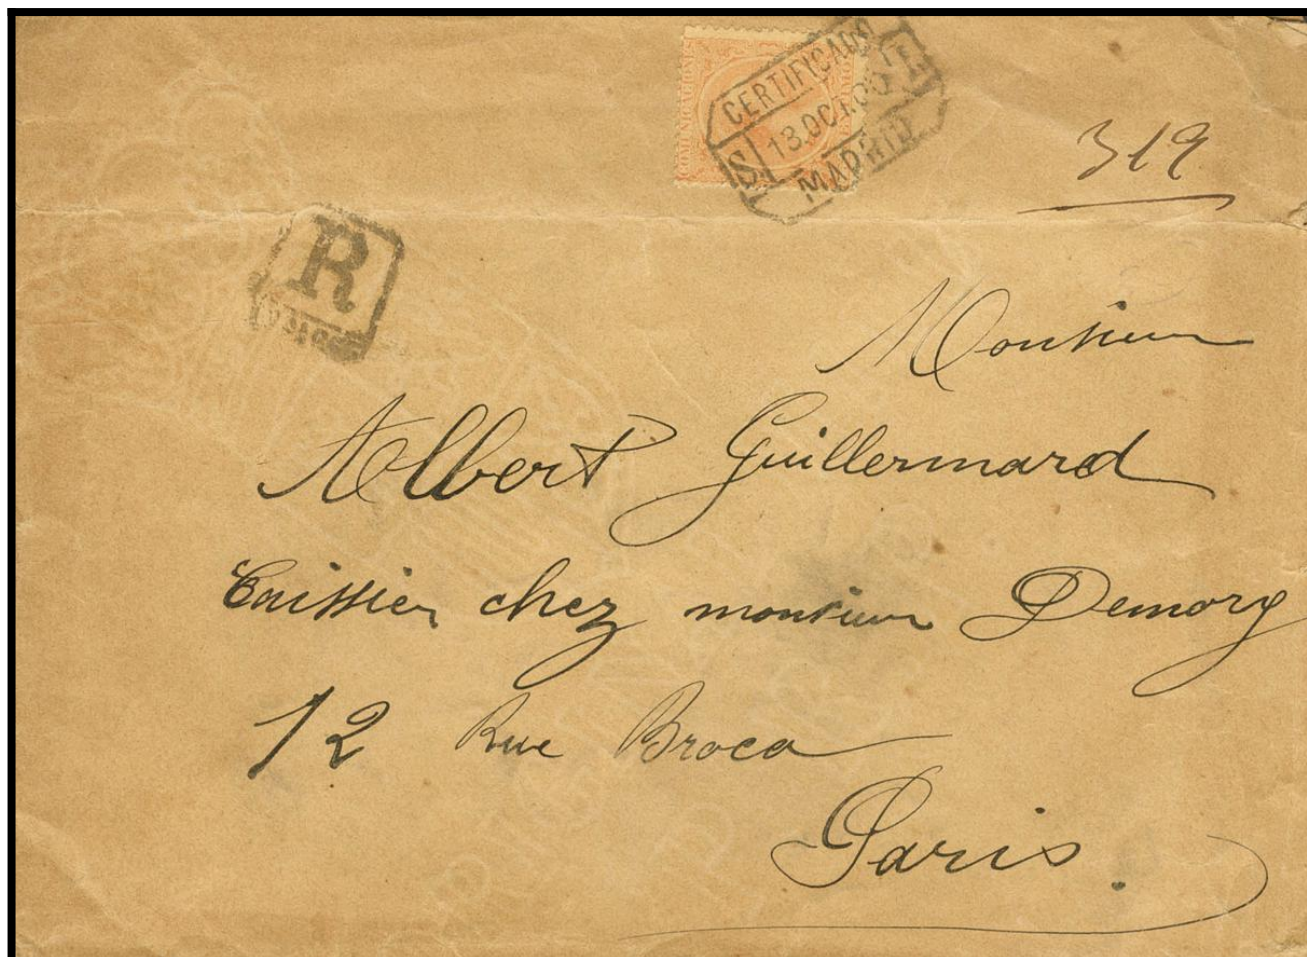 CERTIFICADO
13.OCT.00
MADRID
319
R
Monsieur
Albert Guillermard
Caissier chez monsieur Demory
12 Rue Broca
Paris.